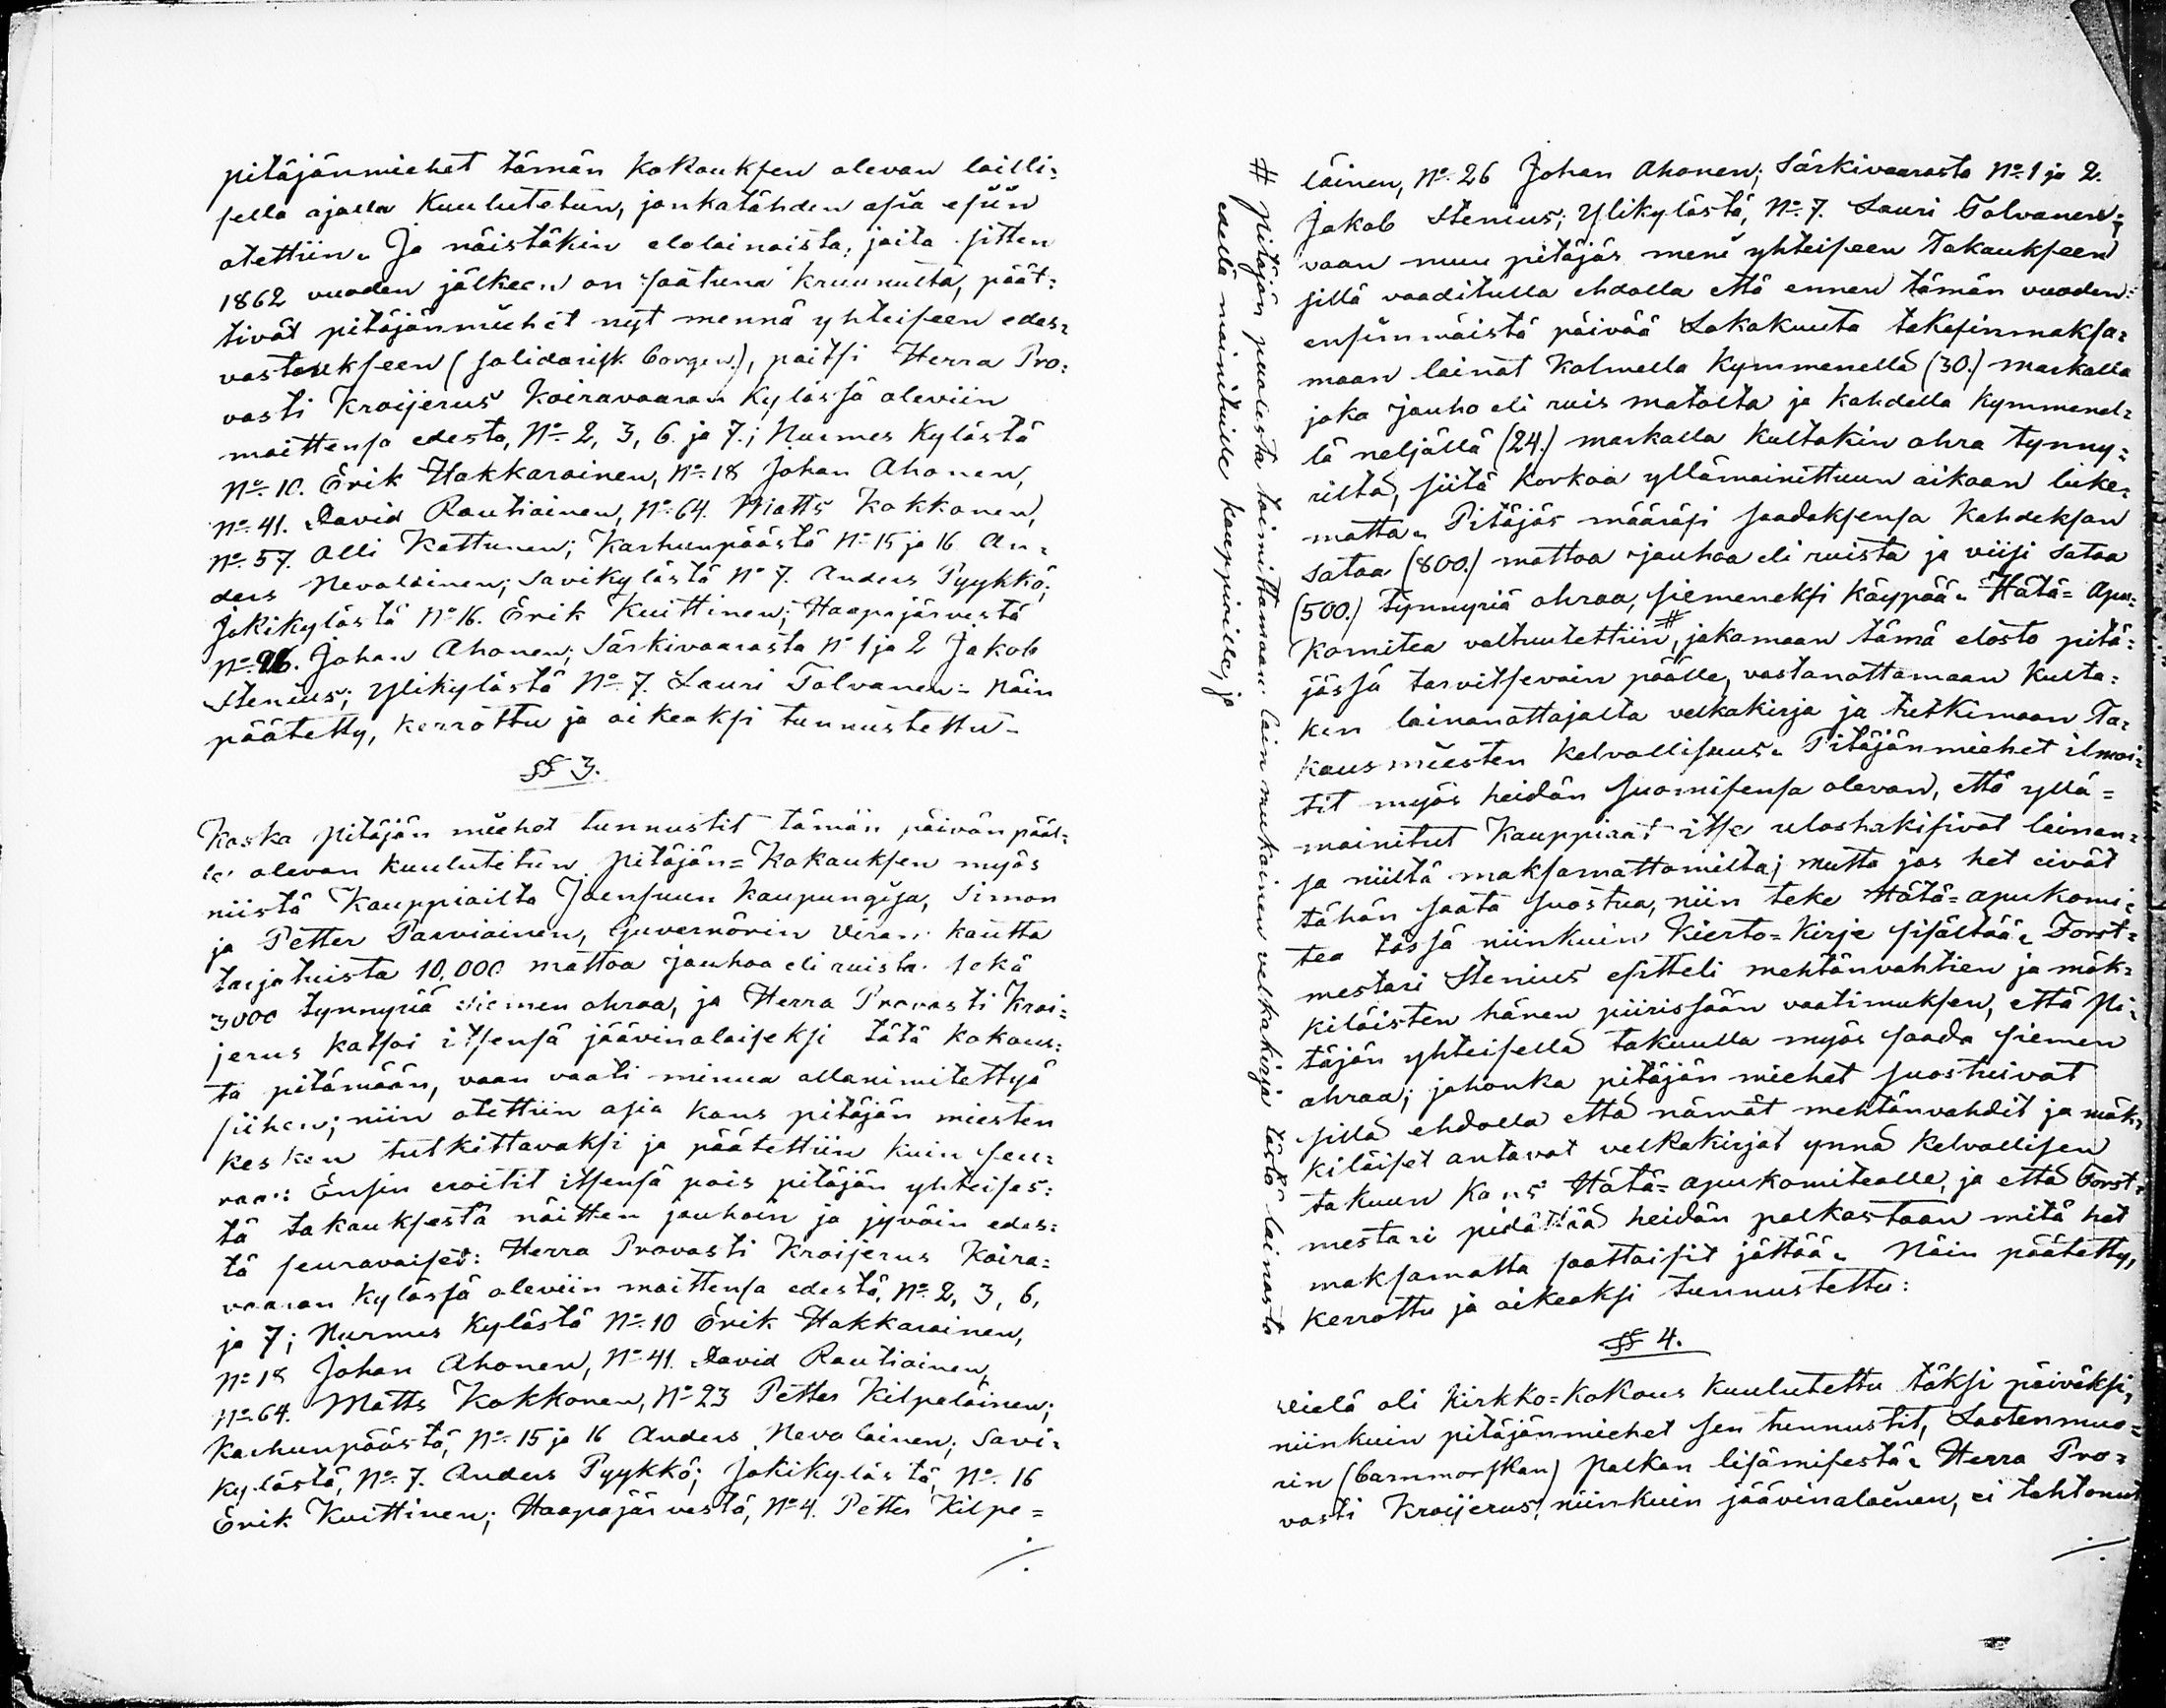 pitäjänmiehet tämän Kokouksen olevan lailli=
sella ajalla Kuulutetun, jonkatähden asia esiin
otettiin. Ja näistäkin elolainoista, joita sitten
1862 vuoden jälkeen on saatuna Kruunulta, päät=
tivät pitäjänmiehet nyt mennä yhteiseen edes=
vastaukseen (solidarisk borgen), paitsi Herra Pro=
vasti Kraijerus Koiravaaran Kylässä oleviin
maittensa edestä, No 2, 3, 6. ja 7.; Nurmes Kylästä
No 10. Erik Hakkarainen, No 18 Johan Ahonen,
No 41. David Rautiainen, No 64. Matts Kokkonen,
No 57. Olli Kettunen; Karhunpäästä No 15 ja 16 An=
ders Nevalainen; Savikylästä No 7. Anders Pyykkö;
Jokikylästä No 16. Erik Kuittinen; Haapajärvestä
No 26. Johan Ahonen; Särkivaarasta No 1 ja 2 Jakob
Stenius; Ylikylästä No 7. Lauri Tolvanen = Näin
päätetty, kerrottu ja oikeaksi tunnustettu -
§§ 3.
Koska pitäjän miehet tunnustit tämän päivän pääl=
le olevan kuulutetun pitäjän=Kokouksen myös
niistä Kauppiailta Joensuun Kaupungisa, Simon
ja Petter Parviainen, Guvernörin Viran kautta
tarjotuista 10,000 mattoa jauhoa eli ruista sekä
3000 tynnyriä siemen ohraa, ja Herra Provasti Krai=
jerus katsoi itsensä jäävinalaiseksi tätä kokous=
ta pitämään, vaan vaati minua allanimitettyä
siihen; niin otettiin asia kans pitäjän miesten
kesken tutkittavaksi ja päätettiin kuin seu=
raa: Ensin eroitit itsensä pois pitäjän yhteises=
tä takauksesta näitten jauhoin ja jyväin edes=
tä seuravaiset: Herra Provasti Kraijerus Koira=
vaaran Kylässä oleviin maittensa edestä, No 2, 3, 6,
ja 7; Nurmes Kylästä No 10 Erik Hakkarainen,
No 18 Johan Ahonen, No 41. David Rautiainen,
No 64. Matts Kokkonen, No 23 Petter Kilpeläinen;
Karhunpäästä, No 15 ja 16 Anders Nevalainen; Savi=
kylästä, No 7. Anders Pyykkö; Jokikylästä, No 16
Erik Kuittinen; Haapajärvestä, No 4. Petter Kilpe=
./.
# pitäjän puolesta toimittamaan lainmukainen velkakirja tästä lainasta
edellä mainituille kauppioille, ja
läinen, No 26 Johan Ahonen; Särkivaarasta No 1 ja 2.
Jakob Stenius; Ylikylästä, No 7. Lauri Tolvanen;
vaan muu pitäjäs meni yhteiseen takaukseen
sillä vaaditulla ehdolla että ennen tämän vuoden
ensimmäistä päivää Lokakuuta takasinmaksa=
maan lainat Kolmella Kymmenellä (30.) markalla
joka jauho eli ruis matolta ja kahdella Kymmenel=
lä neljällä (24.) markalla Kultakin ohra tynny=
riltä, siitä Korkoa yllämainittuun aikaan luke=
matta. Pitäjäs määräsi saadaksensa Kahdeksan
sataa (800.) mattoa jauhoa eli ruista ja viisi sataa
(500.) tynnyriä ohraa, siemeneksi käypää. Hätä=Apu=
Komitea valtuutettiin #, jakamaan tämä elosto pitä=
jässä tarvitsevain päälle, vastanottamaan Kulta=
kin lainanottajalta velkakirja ja tutkimaan Ta=
kausmiesten kelvollisuus. Pitäjänmiehet ilmoi=
tit myös heidän suomisensa olevan, että yllä=
mainitut Kauppiaat itse uloshakisivat lainan=
sa niiltä maksamattomilta; mutta jos het eivät
tähän saata suostua, niin teke Hätä=apukomi=
tea tässä niinkuin Kierto=Kirje sisältää. Forst=
mestari Stenius esitteli mehtänvahtien ja mäk=
kiläisten hänen piirissään vaatimuksen, että pi=
täjän yhteisellä takuulla myös saada siemen
ohraa; johonka pitäjän miehet suostuivat
sillä ehdolla että nämät mehtänvahdit ja mäk=
kiläiset antavat velkakirjat ynnä kelvollisen
takuun Kans Hätä=apukomitealle, ja että Forst=
mestari pidättää heidän palkastaan mitä het
maksamatta saattaisit jättää. Näin päätetty,
kerrottu ja oikeaksi tunnustettu:
§§ 4.
Vielä oli Kirkko=Kokous Kuulutettu täksi päiväksi,
niinkuin pitäjänmiehet sen tunnustit, Lastenmuo=
rin (barnmorskan) palkan lisämisestä. Herra Pro=
vasti Kraijerus, niinkuin jäävinalainen, ei tahtonut
./.